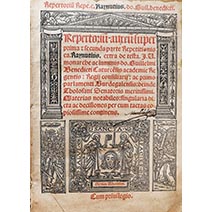 Repertoriū Repe.c. Raynutius, do. Guil. Benedicti
Repertoriū aureū super
prima ⁊ secunda parte Repetitionis
ca. Raynutius, extra de testa. J. U.
monarche ac luminis do. Guillelmi
Benedicti
academie
Regentis: Regii consiliarii: ac primo
parlamenti Burdegalensis, deinde
Tholosani Senatoris meritissimi.
Materias notabiles singularia de
cta ac decisiones per eum tactas co
piosissime continens.
Cum priuilegio.